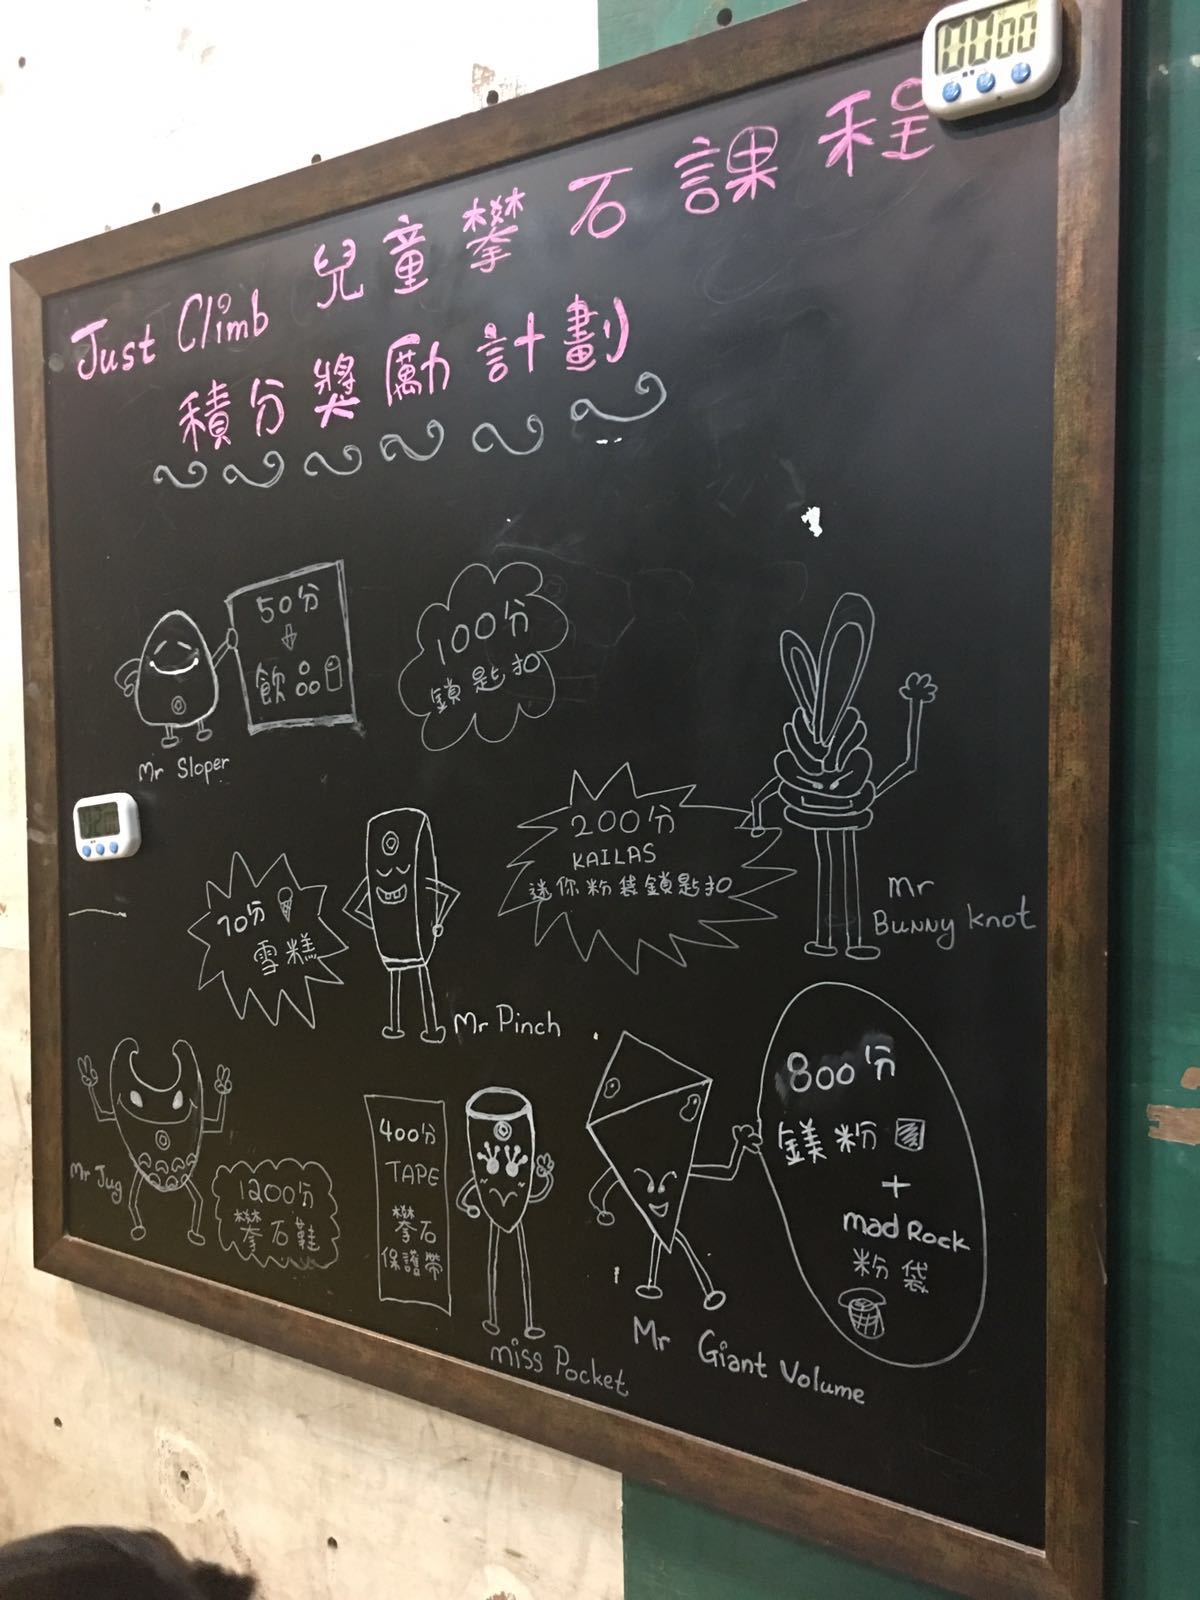 Just Climb 兒童攀石課程
積分獎勵計劃
50分
飲品
Mr Sloper
100分
鎖匙扣
200分
KAILAS
迷你粉袋鎖匙扣
Mr
Bunny Knot
70分
雪糕
Mr Pinch
Mr Jug
1200分
攀石鞋
400分
TAPE
攀石
保護帶
miss Pocket
800分
鎂粉
+
mad Rock
粉袋
Mr Giant Volume
00 00